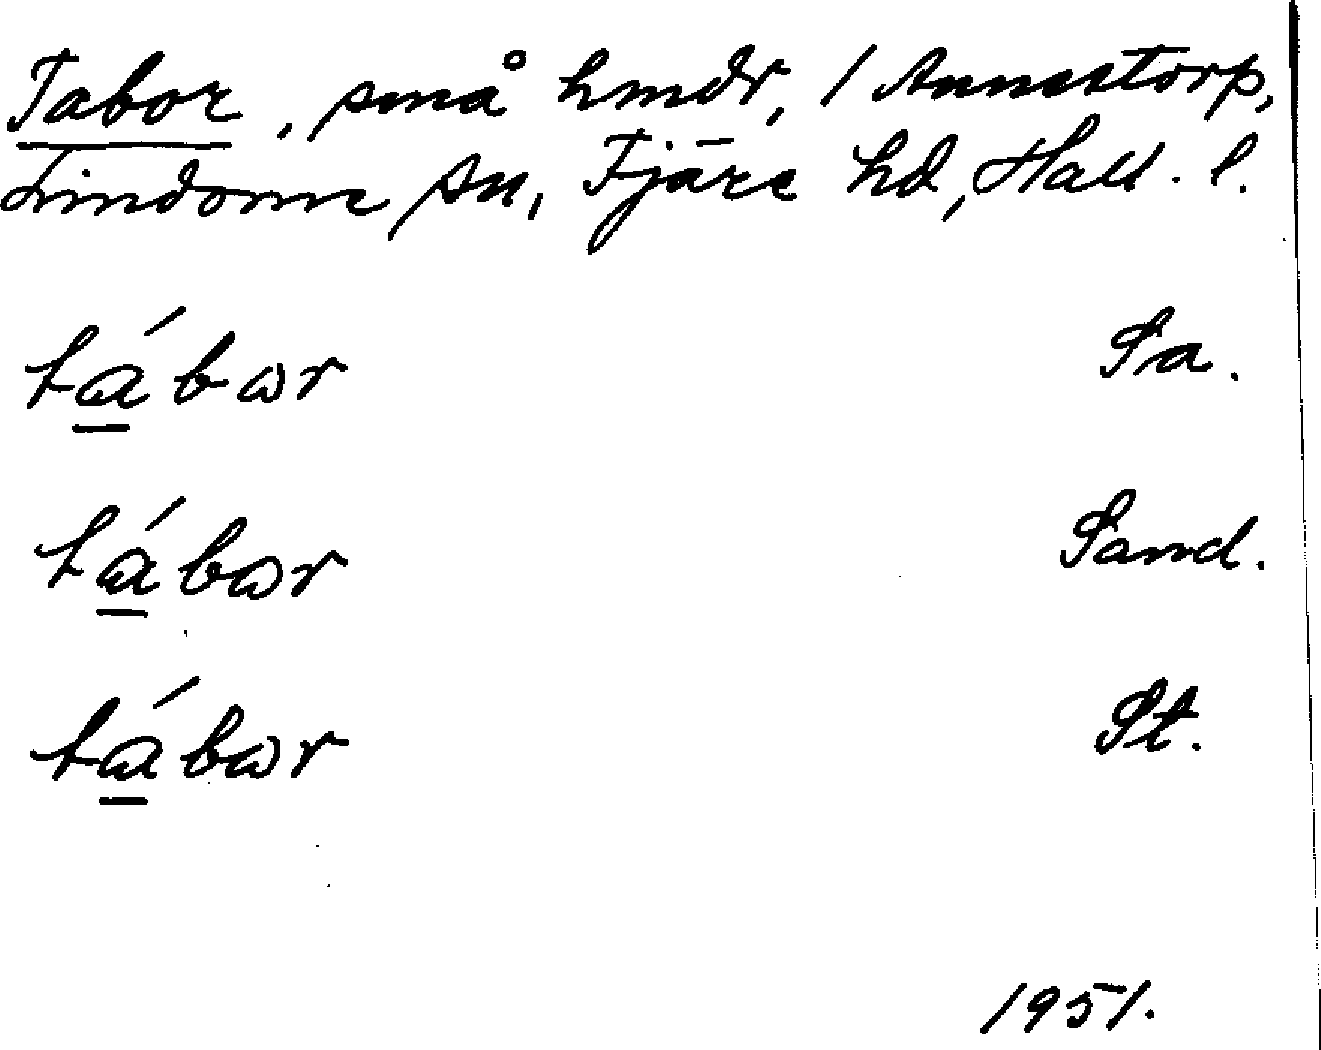 Tabor, små hmdr, / Annestorp,
Lindome sn, Fjäre hd, Hall. l.
tá̱bωr Sa.
tá̱bωr Sand.
tá̱bωr St.
1951.